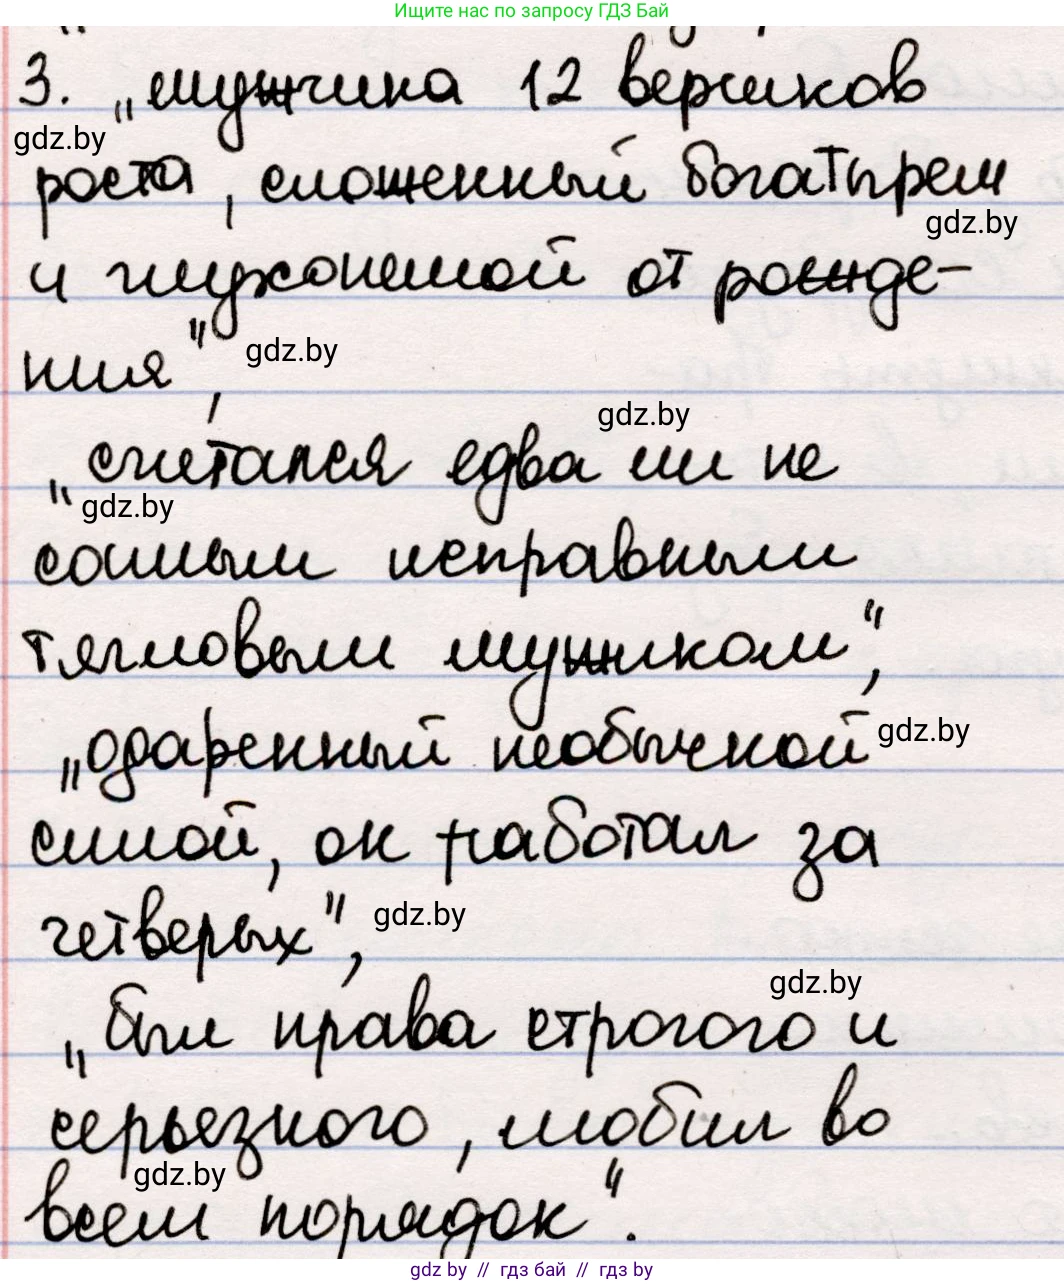 Ищите нас по запросу ГДЗ Бай
3. „мужчина 12 вершков
gdz.by
роста, сложенный богатырем
gdz.by
и глухонемой от рожде-
ния",
gdz.by
gdz.by
„считался едва ли не
gdz.by
самым исправным
тягловым мужиком",
gdz.by
„одаренный необычной
силой, он работал за
четверых",
gdz.by
gdz.by
„был нрава строгого и
серьезного, любил во
gdz.by
всем порядок".
gdz.by // гдз бай // gdz.by